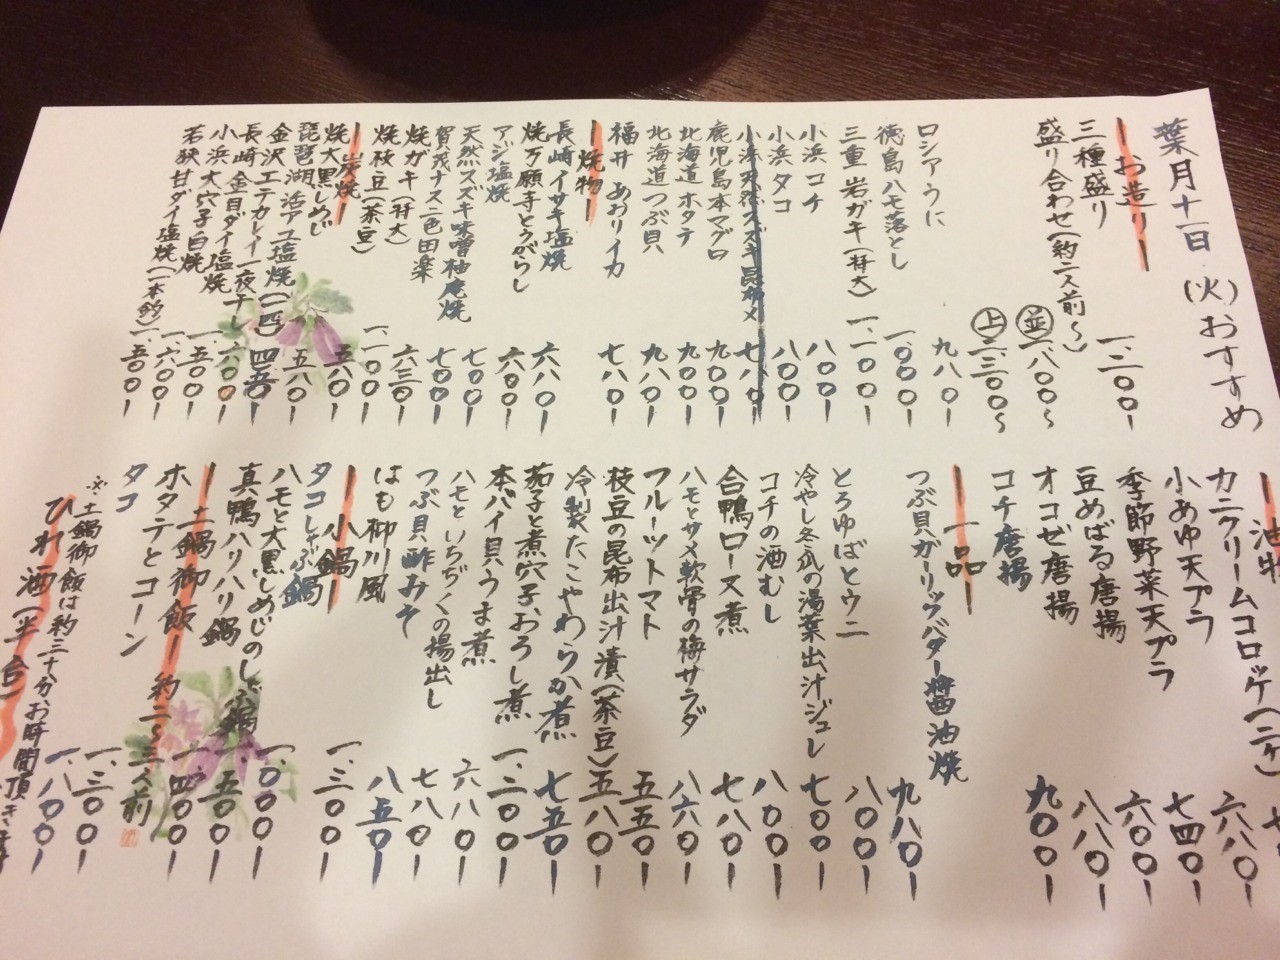 葉月十一日(火)おすすめ
お造り
三種盛り 一、二〇〇-
盛り合わせ(約二人前〜) 並 一、八〇〇〜
上 二、三〇〇〜
ロシアウニ 九八〇-
徳島ハモ落とし 一、〇〇〇-
三重岩ガキ(特大) 一、一〇〇-
小浜コチ 八〇〇-
小浜タコ 八〇〇-
小浜天然スズキ昆布〆 七八〇-
鹿児島本マグロ 九〇〇-
北海道ホタテ 九〇〇-
北海道つぶ貝 九八〇-
福井あおりイカ 七八〇-
焼物
長崎イサキ塩焼 六八〇-
焼万願寺とうがらし 六〇〇-
アジ塩焼 七〇〇-
天然スズキ味噌柚庵焼 七〇〇-
賀茂ナス二色田楽 六三〇-
焼ガキ(特大) 一、一〇〇-
焼枝豆(茶豆) 五八〇-
炭焼
焼大黒しめじ 五八〇-
琵琶湖活アユ塩焼(一匹) 四五〇-
金沢エテカレイ一夜干し 六〇〇-
長崎金目ダイ塩焼 一、五〇〇-
小浜大穴子白焼 一、六〇〇-
若狭甘ダイ塩焼(一本釣) 一、五〇〇-
油物
カニクリームコロッケ(二ヶ)
小あゆ天プラ 六八〇-
季節野菜天プラ 七四〇-
豆めばる唐揚 六〇〇-
オコゼ唐揚 八八〇-
コチ唐揚 九〇〇-
一品
つぶ貝ガーリックバター醤油焼 九八〇-
とろゆばとウニ 八〇〇-
冷やし冬瓜の湯葉出汁ジュレ 七〇〇-
コチの酒むし 八〇〇-
合鴨ロース煮 七八〇-
ハモとサメ軟骨の梅サラダ 八六〇-
フルーツトマト 五五〇-
枝豆の昆布出汁漬(茶豆) 五八〇-
冷製たこやわらか煮 七五〇-
茄子と煮穴子、おろし煮 一、二〇〇-
本バイ貝うま煮 六八〇-
ハモといちぢくの揚出し 七八〇-
つぶ貝酢みそ 八五〇-
はも柳川風 一、三〇〇-
小鍋
タコしゃぶ鍋 一、〇〇〇-
ハモと大黒しめじのしゃぶ鍋 一、五〇〇-
真鴨ハリハリ鍋 一、四〇〇-
土鍋御飯-約二〜三人前
ホタテとコーン 一、三〇〇-
タコ 一、八〇〇-
※土鍋御飯は約三十分お時間頂きます
ひれ酒(半合)